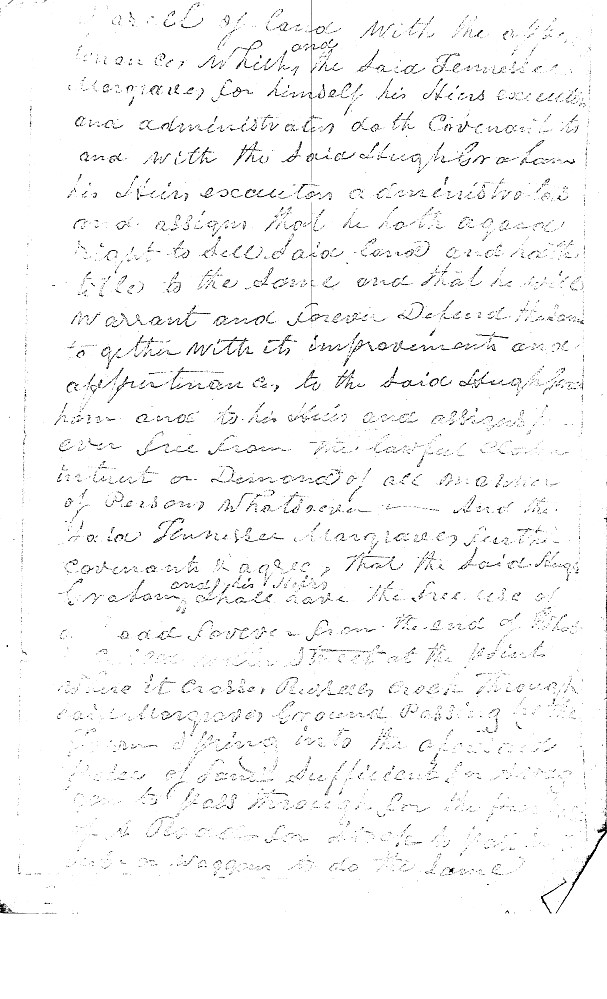 Parcell of land with the appe
tenances which, and the Said Tennessee
Margraves for himself his Heirs executors
and administrators doth Covenant to
and with the Said Hugh Graham
his Heirs executors administrators
and assigns that he hath a good
right to Sell Said land and hath
title to the Same and that he will
Warrant and Forever Defend the Same
together with its improvements and
appurtinances, to the Said Hugh Gra
ham and to his Heirs and assigns f
ever free from the lawful Claim
intrest or Demand of all manner
of Persons Whatsoever — And the
Said Tennessee Margraves further
covenants & agrees, that the Said Hugh
Graham and his Heirs Shall have the free use of
a Road forever from the end of
Street at the point
where it Crosses Creek Through
Margraves Ground Passing by the
Spring into the aforesaid
of Land Sufficient for a wag
gon to pass through for the
of A Road for Stock to pass
or Waggons to do the Same